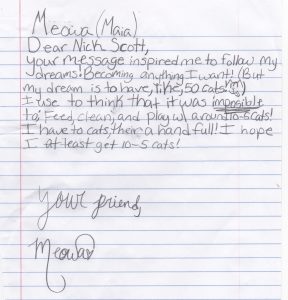 Meowa (Maia)
Dear Nick Scott,
your message inspired me to follow my
dreams! Becoming anything I want! (But
my dream is to have, like, 50 cats!)
I use to think that it was impossible
to; Feed, clean, and play w/ around 10-5 cats!
I have to cats, their a hand full! I hope
I at least get 10-5 cats!
your friend,
Meowa